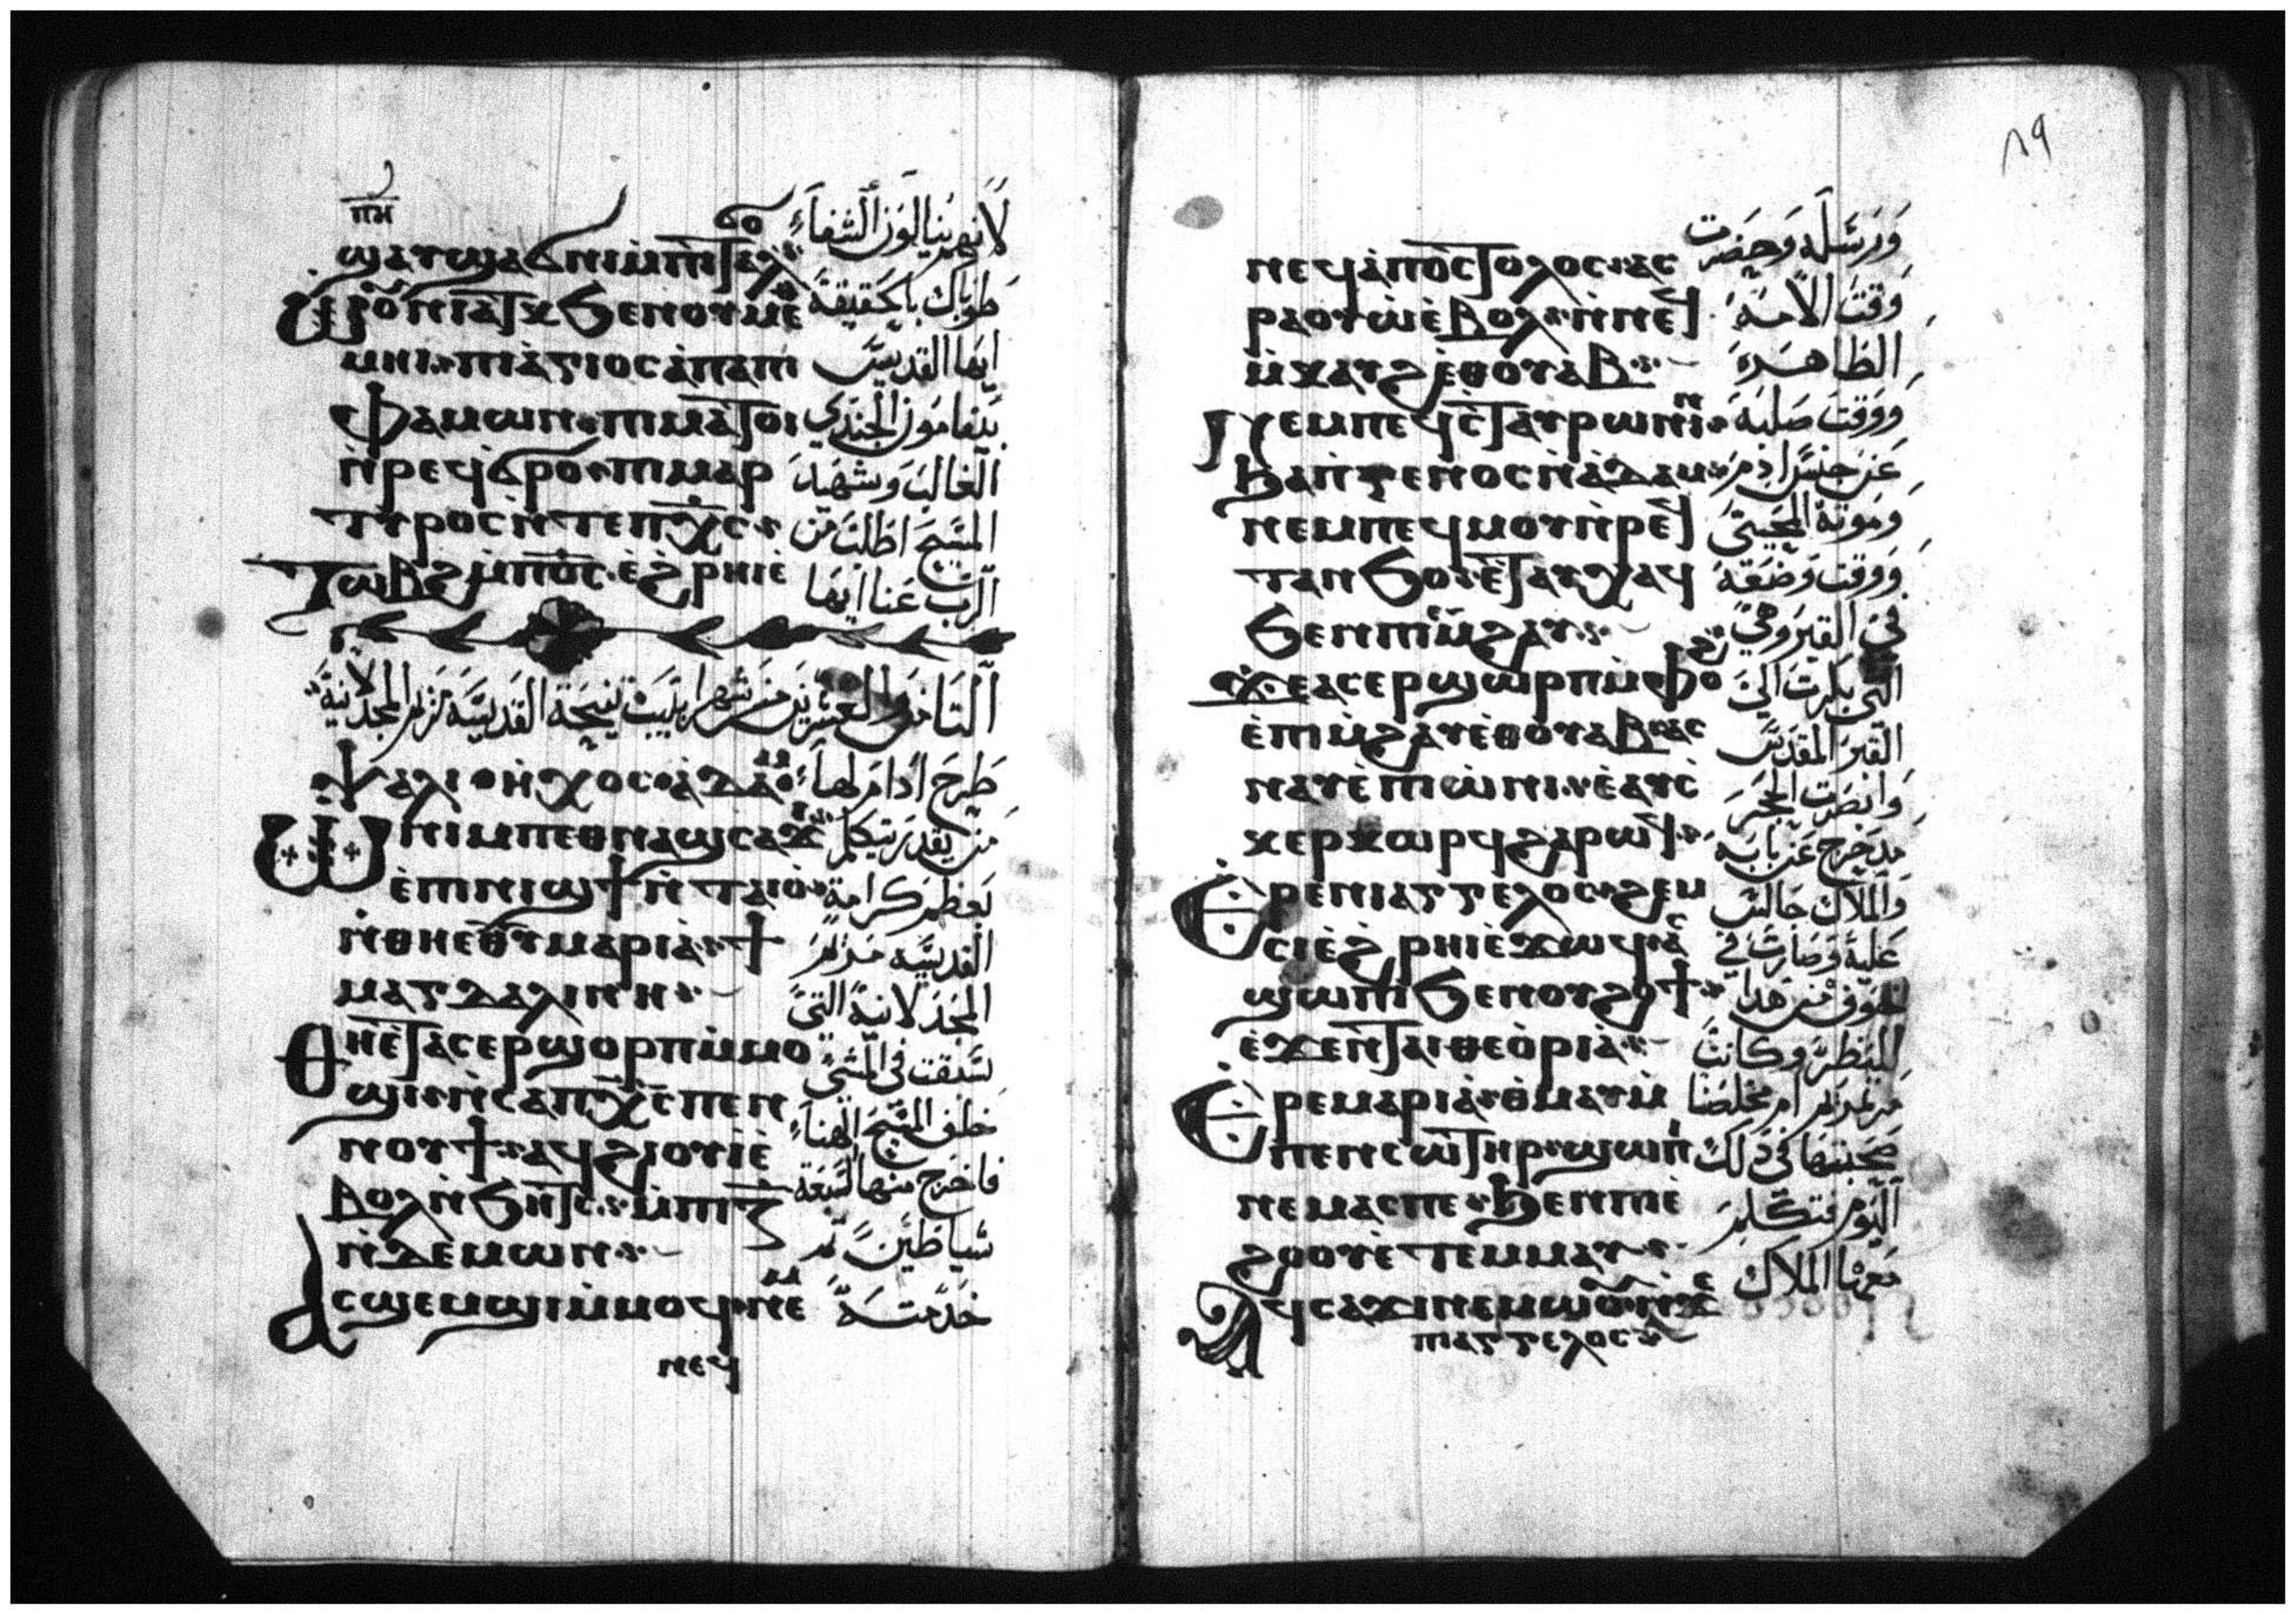 ⲡⲏ
ϣⲁⲧϣⲁϭⲛⲓⲙⲡⲓⲧⲁⲗϭⲟ لانهم ينالون الشفاء
ⲱⲟⲩⲛⲓⲁⲧⲕ ϧⲉⲛⲟⲩⲙⲉ طوباك بالحقيقة
ⲙⲏⲓ ⲡⲓⲁⲅⲓⲟⲥ ⲁⲡⲁ ⲡⲓ ايها القديس
ⲫⲁⲙⲱⲛ ⲡⲓⲙⲁⲧⲟⲓ بيفامون الجندي
ⲛⲣⲉϥϭⲣⲟ ⲡⲓⲙⲁⲣ الغالب وشهيد
ⲧⲩⲣⲟⲥ ⲛⲧⲉ ⲡⲭⲥ المسيح اطلب من
ⲧⲱⲃϩ ⲙⲡϭⲟⲥ ⲉϩⲣⲏⲓ ⲉ الرب عنا ايها
التامن والعشرين من شهر ابيب نيحة القديسة مريم المجدلانية
ⲯⲁⲗⲓ ⲏⲭⲟⲥ ⲁⲇⲁⲙ طرح ادام لها
ⲛⲓⲙ ⲡⲉⲑⲛⲁϣⲥⲁϫⲓ من يقدر يتكلم
ⲉⲡⲛⲓϣϯ ⲛⲧⲁⲓⲟ بعظم كرامة
ⲛⲑⲏⲉⲑⲩ ⲙⲁⲣⲓⲁ ϯ القديسة مريم
ⲙⲁⲅⲇⲁⲗⲓⲛⲏ المجدلانية التي
ⲑⲏⲉⲧⲁⲥⲉⲣϣⲟⲣⲡ ⲙⲙⲟ سبقت في المشي
ϣⲓ ⲛⲥⲁ ⲡⲭⲥ ⲡⲉⲛ خلف المسيح الهنا
ⲛⲟⲩϯ ⲁϥϩⲓⲟⲩⲓ ⲉ فاخرج منها السبعة
ⲃⲟⲗ ⲛϧⲏⲧⲥ ⲙⲡⲓⲍ
ⲛⲇⲉⲙⲱⲛ شياطين ثم
ⲁⲥϣⲉⲙϣⲓ ⲙⲙⲟϥ ⲛⲉⲙ خدمته
ⲛⲉϥ
٨٩
ⲛⲉϥⲁⲡⲟⲥⲧⲟⲗⲟⲥ ⲁⲥ ورسله وحضرت
ⲣⲁⲟⲩⲱ ⲉⲃⲟⲗ ⲛⲛⲉϥ وقت الامه
ⲙⲕⲁⲩϩ ⲉⲑⲟⲩⲁⲃ الظاهره
ⲛⲉⲙ ⲡⲉϥⲥⲧⲁⲩⲣⲱⲛⲓⲛ ووقت صلبه
ϧⲁ ⲡⲅⲉⲛⲟⲥ ⲛⲁⲇⲁⲙ عن جنس ادم
ⲛⲉⲙ ⲡⲉϥⲙⲟⲩ ⲛⲣⲉϥ وموته المحيي
ⲧⲁⲛϧⲟ ⲉⲧⲁⲩⲭⲁϥ ووقت وضعه
ϧⲉⲛ ⲡⲓⲙϩⲁⲩ في القبر وهي
ϫⲉ ⲁⲥⲉⲣϣⲱⲣⲡ ⲙⲫⲟⲟⲩ التي بكرت الي
ⲉⲡⲓⲙϩⲁⲩ ⲉⲑⲟⲩⲁⲃ ⲁⲥ القبر المقدس
ⲛⲁⲩ ⲉⲡⲓⲱⲛⲓ ⲉⲁⲩⲥ وانضرت الحجر
ⲕⲉⲣⲕⲱⲣϥ ϩⲁⲣⲱϥ مدحرج عن بابه
ⲉⲣⲉ ⲛⲓⲁⲅⲅⲉⲗⲟⲥ ϩⲉⲙ والملاك جالس
ⲥⲓ ⲉϩⲣⲏⲓ ⲉϫⲱϥ ⲁⲥ عليه وصارت في
ϣⲱⲡⲓ ϧⲉⲛ ⲟⲩϩⲟϯ خوف من هدا
ⲉϫⲉⲛ ⲧⲁⲓ ⲑⲉⲟⲣⲓⲁ المنظر وكانت
ⲉⲣⲉ ⲙⲁⲣⲓⲁ ⲑⲙⲁⲩ ⲙ مريم ام مخلصنا
ⲡⲉⲛⲥⲱⲧⲏⲣ ϣⲱⲡⲓ صحبتها في دلك
ⲛⲉⲙⲁⲥ ⲡⲉ ϧⲉⲛ ⲡⲓⲉ اليوم فتكلم
ϩⲟⲟⲩ ⲉⲧⲉⲙⲙⲁⲩ
ⲁϥⲥⲁϫⲓ ⲛⲉⲙⲱⲟⲩ ⲛϫⲉ معهما الملاك
ⲡⲓⲁⲅⲅⲉⲗⲟⲥ